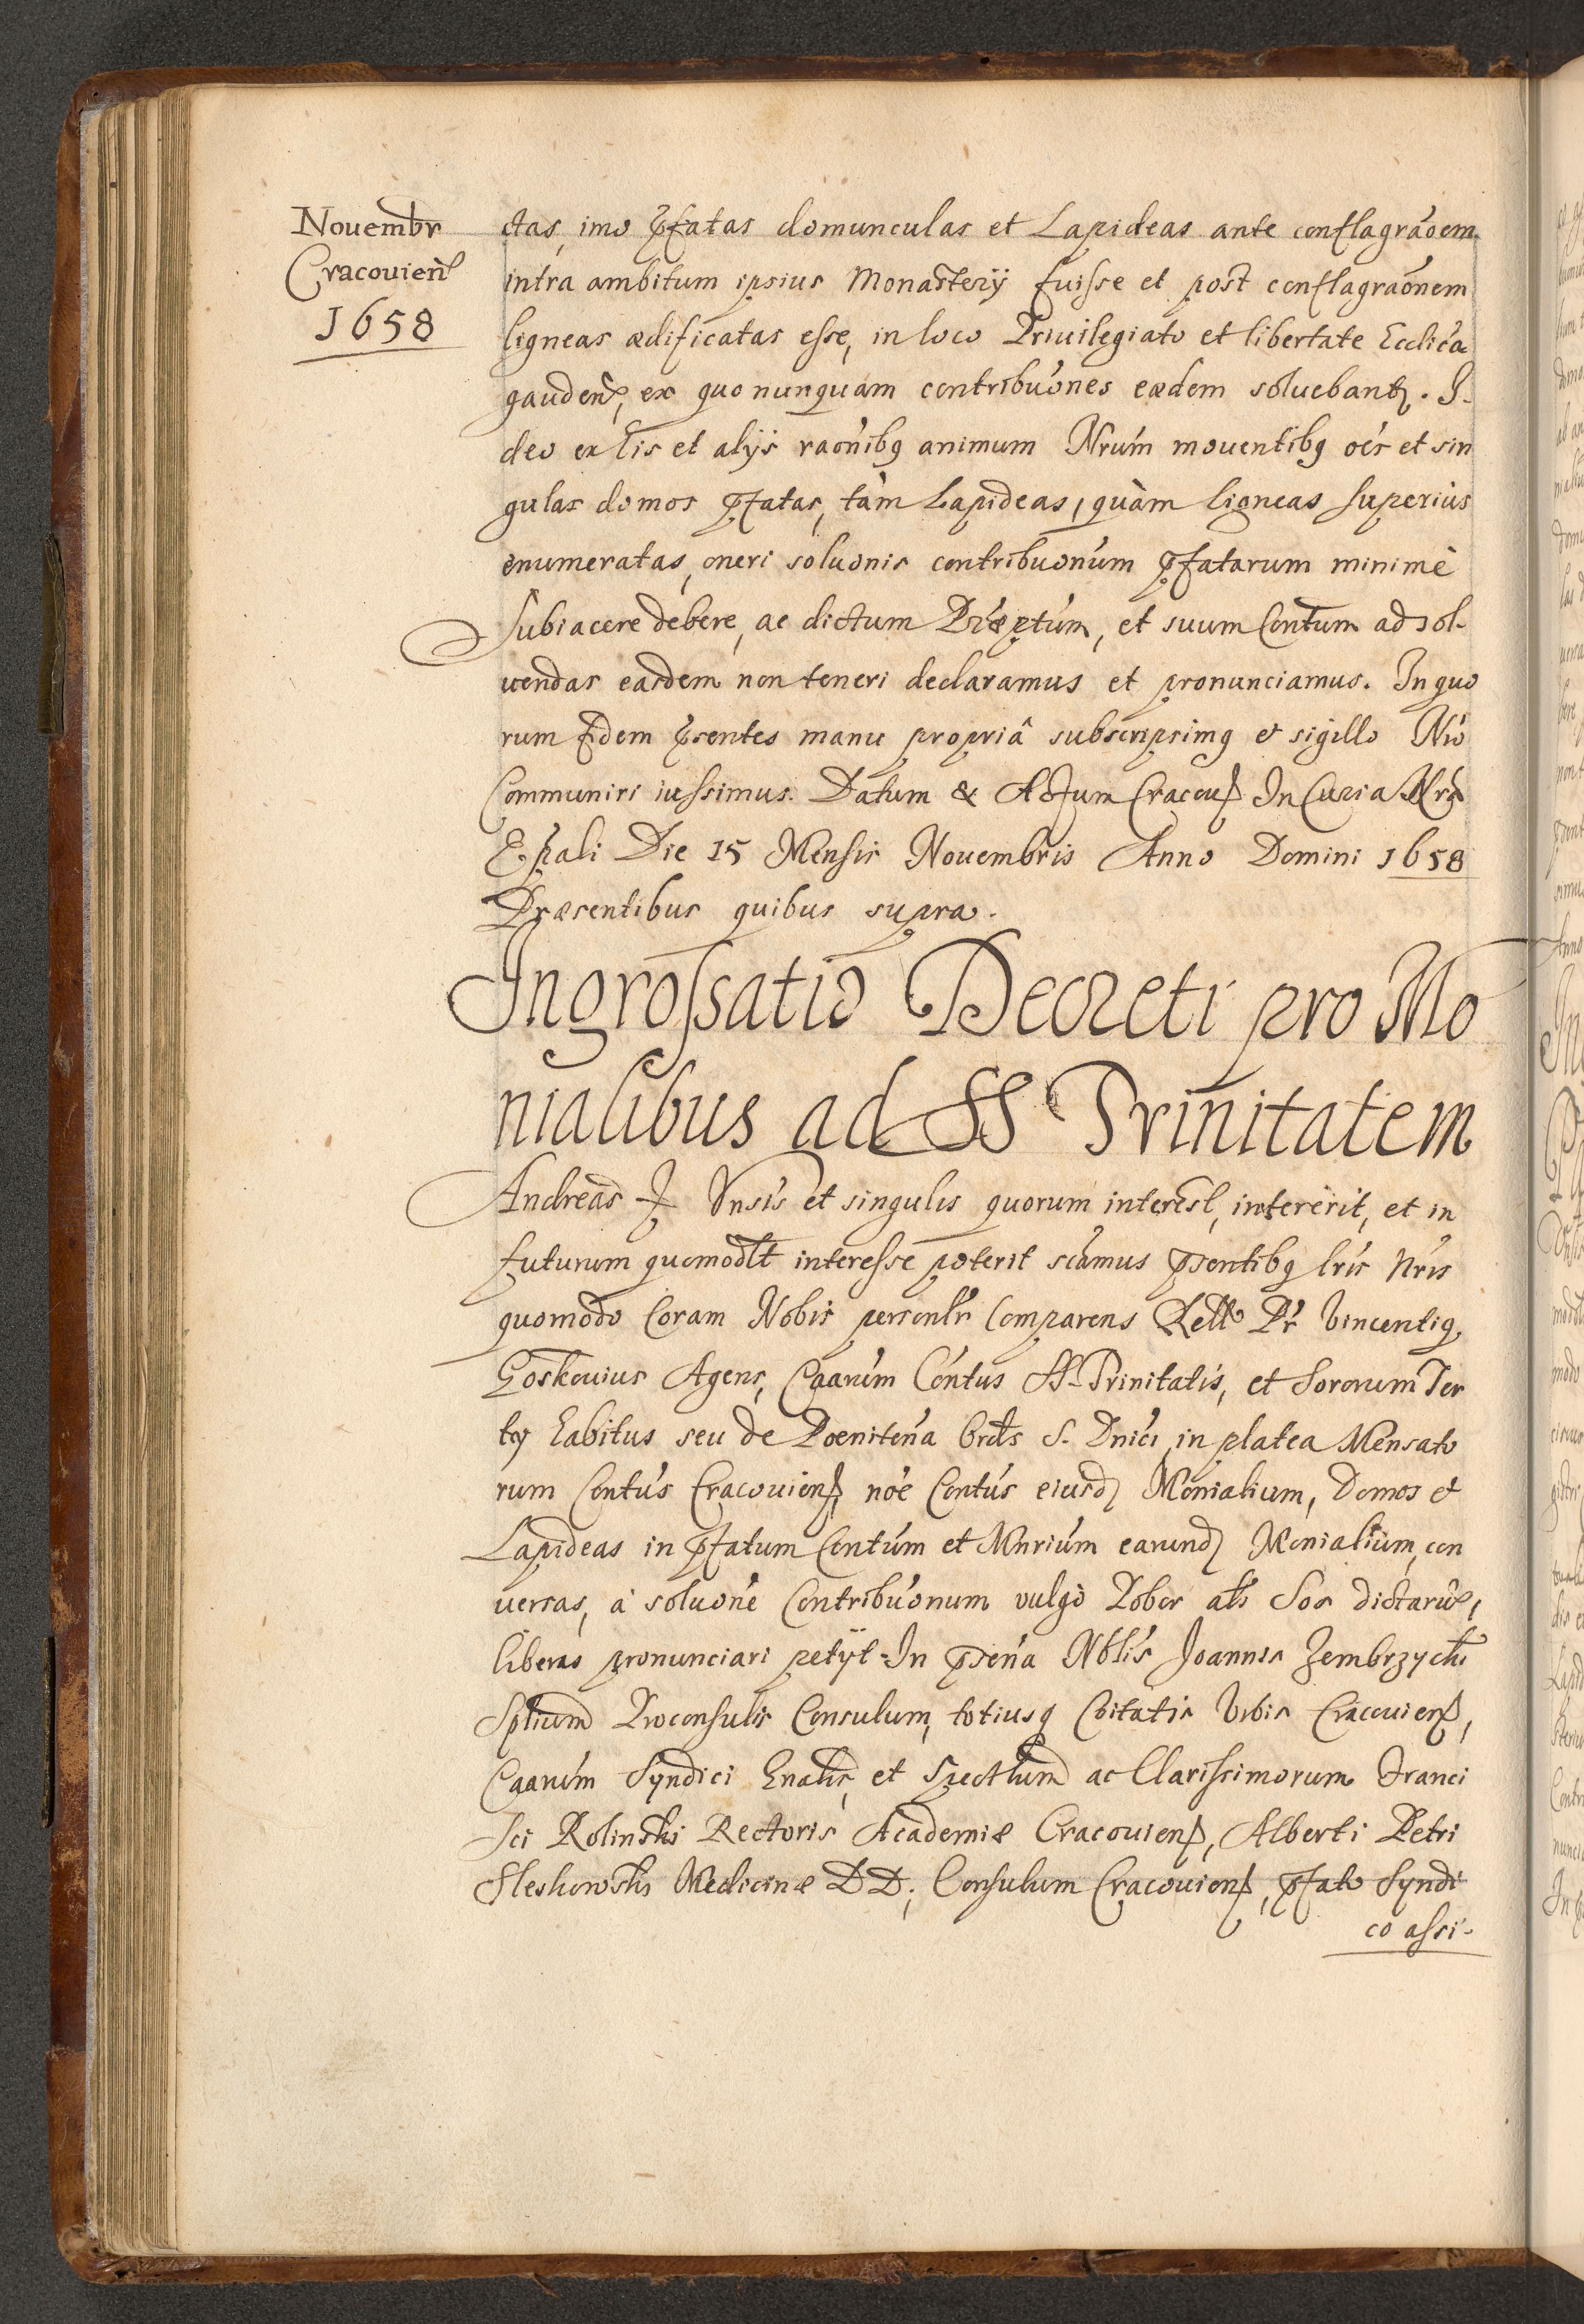 Nouembr
Cracouien̄
1658
ctas, imo p̄fatas domunculas et Lapideas ante conflagrāoem
intra ambitum ipsius Monasterÿ fuisse et post conflagraōnem
ligneas ædificatas esse, in loco Priuilegiato et libertate Ecclīca
gauden̄, ex quo nunquam contribuōnes eædem soluebantꝛ. I-
deo ex lis et alÿs raōnibꝫ animum Nrūm mouentibꝫ oēs et sin
gulas domos p̄fatas, tàm Lapideas, quàm ligneas superiùs
enumeratas, oneri soluonis contribuonūm p̄fatarum minimè
subiacere debere, ac dictum Præptūm, et suum Conūtum ad sol-
uendas easdem non teneri declaramus et pronunciamus. In quo
rum fidem p̄sentes manu propriâ subscripsimꝫ et sigillo Nrō
Communiri iussimus. Datum & Actum Cracouꝭ In Curia Nrā
Ep̄pali Die 15 Mensis Nouembris Anno Domini 1658
Præsentibus quibus supra.
Ingrossatio Decreti pro Mo
nialibus ad SS Trinitatem
Andreas Vnsīs et singulis quorum interest, intererit, et in
futurum quomodlt interesse poterit scāmus p̄sentibꝫ lrīs Nrīs
quomodo Coram Nobis personlr̄ Comparens Pr̄ Vincentiꝫ
Goskouius Agens, Caarūm Cōntus SS. Trinitatis, et Sororum Ter
tÿ habitus seu de Pœnitenā Ordīs S. Dnīci in platea Mensato
rum Conūtus Cracouienꝭ, noē Conūtus eiusdꝫ Monialium, Domos et
Lapideas in p̄fatum Conūtum et Mnrium earundꝫ Monialium, con
uersas, à soluonē Contribuōnum vulgò Pobor als̄ Sos dictarū,
liberas pronunciari petÿt. In p̄senā Nblīs Joannis Zembrzycki
Sptlium Proconsulis Consulum, totiusqꝫ Cōitatis Vrbis Cracouienꝭ,
Caarūm Syndici Gnalis, et Spectlium ac Clarissimorum Franci
sci Rolinski Rectoris Academiæ Cracouienꝭ, Alberti Petri
Sleskowski Medicinæ DD; Consulum Cracouienꝭ, p̄fato Syndi
co assi-